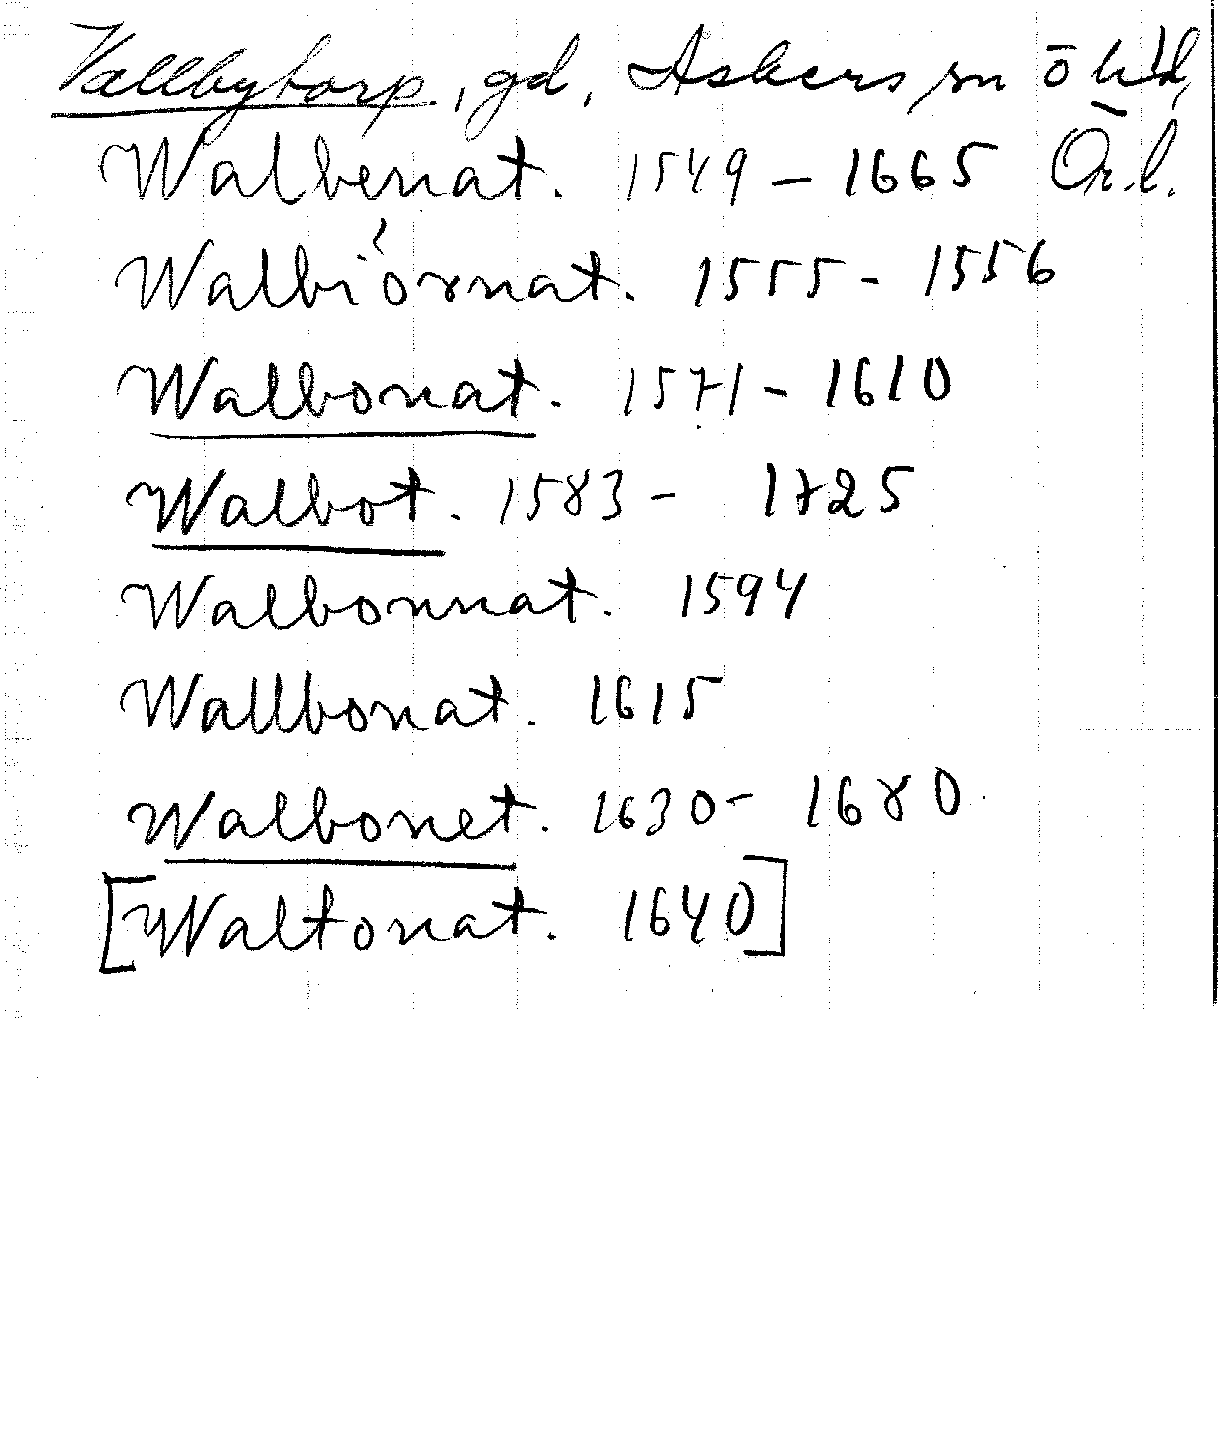 Vallbytorp, gd, Askers sn ō hd,
Walbenat. 1549 – 1665 Ör. l.
Walbiörnat. 1555 - 1556
Walbonat. 1571 - 1610
Walbot. 1583 - 1725
Walbonnat. 1594
Wallbonat. 1615
Walbonet. 1630 - 1680
[Waltonat. 1640]